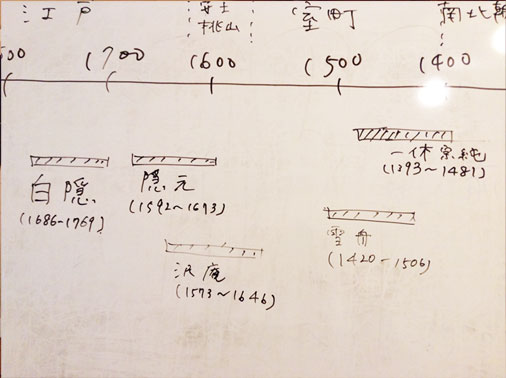 江戸
安土
桃山
室町
南北朝
00
1700
1600
1500
1400
白隠
(1686-1769)
隠元
(1592~1673)
沢庵
(1573~1646)
一休宗純
(1393~1481)
雪舟
(1420-1506)